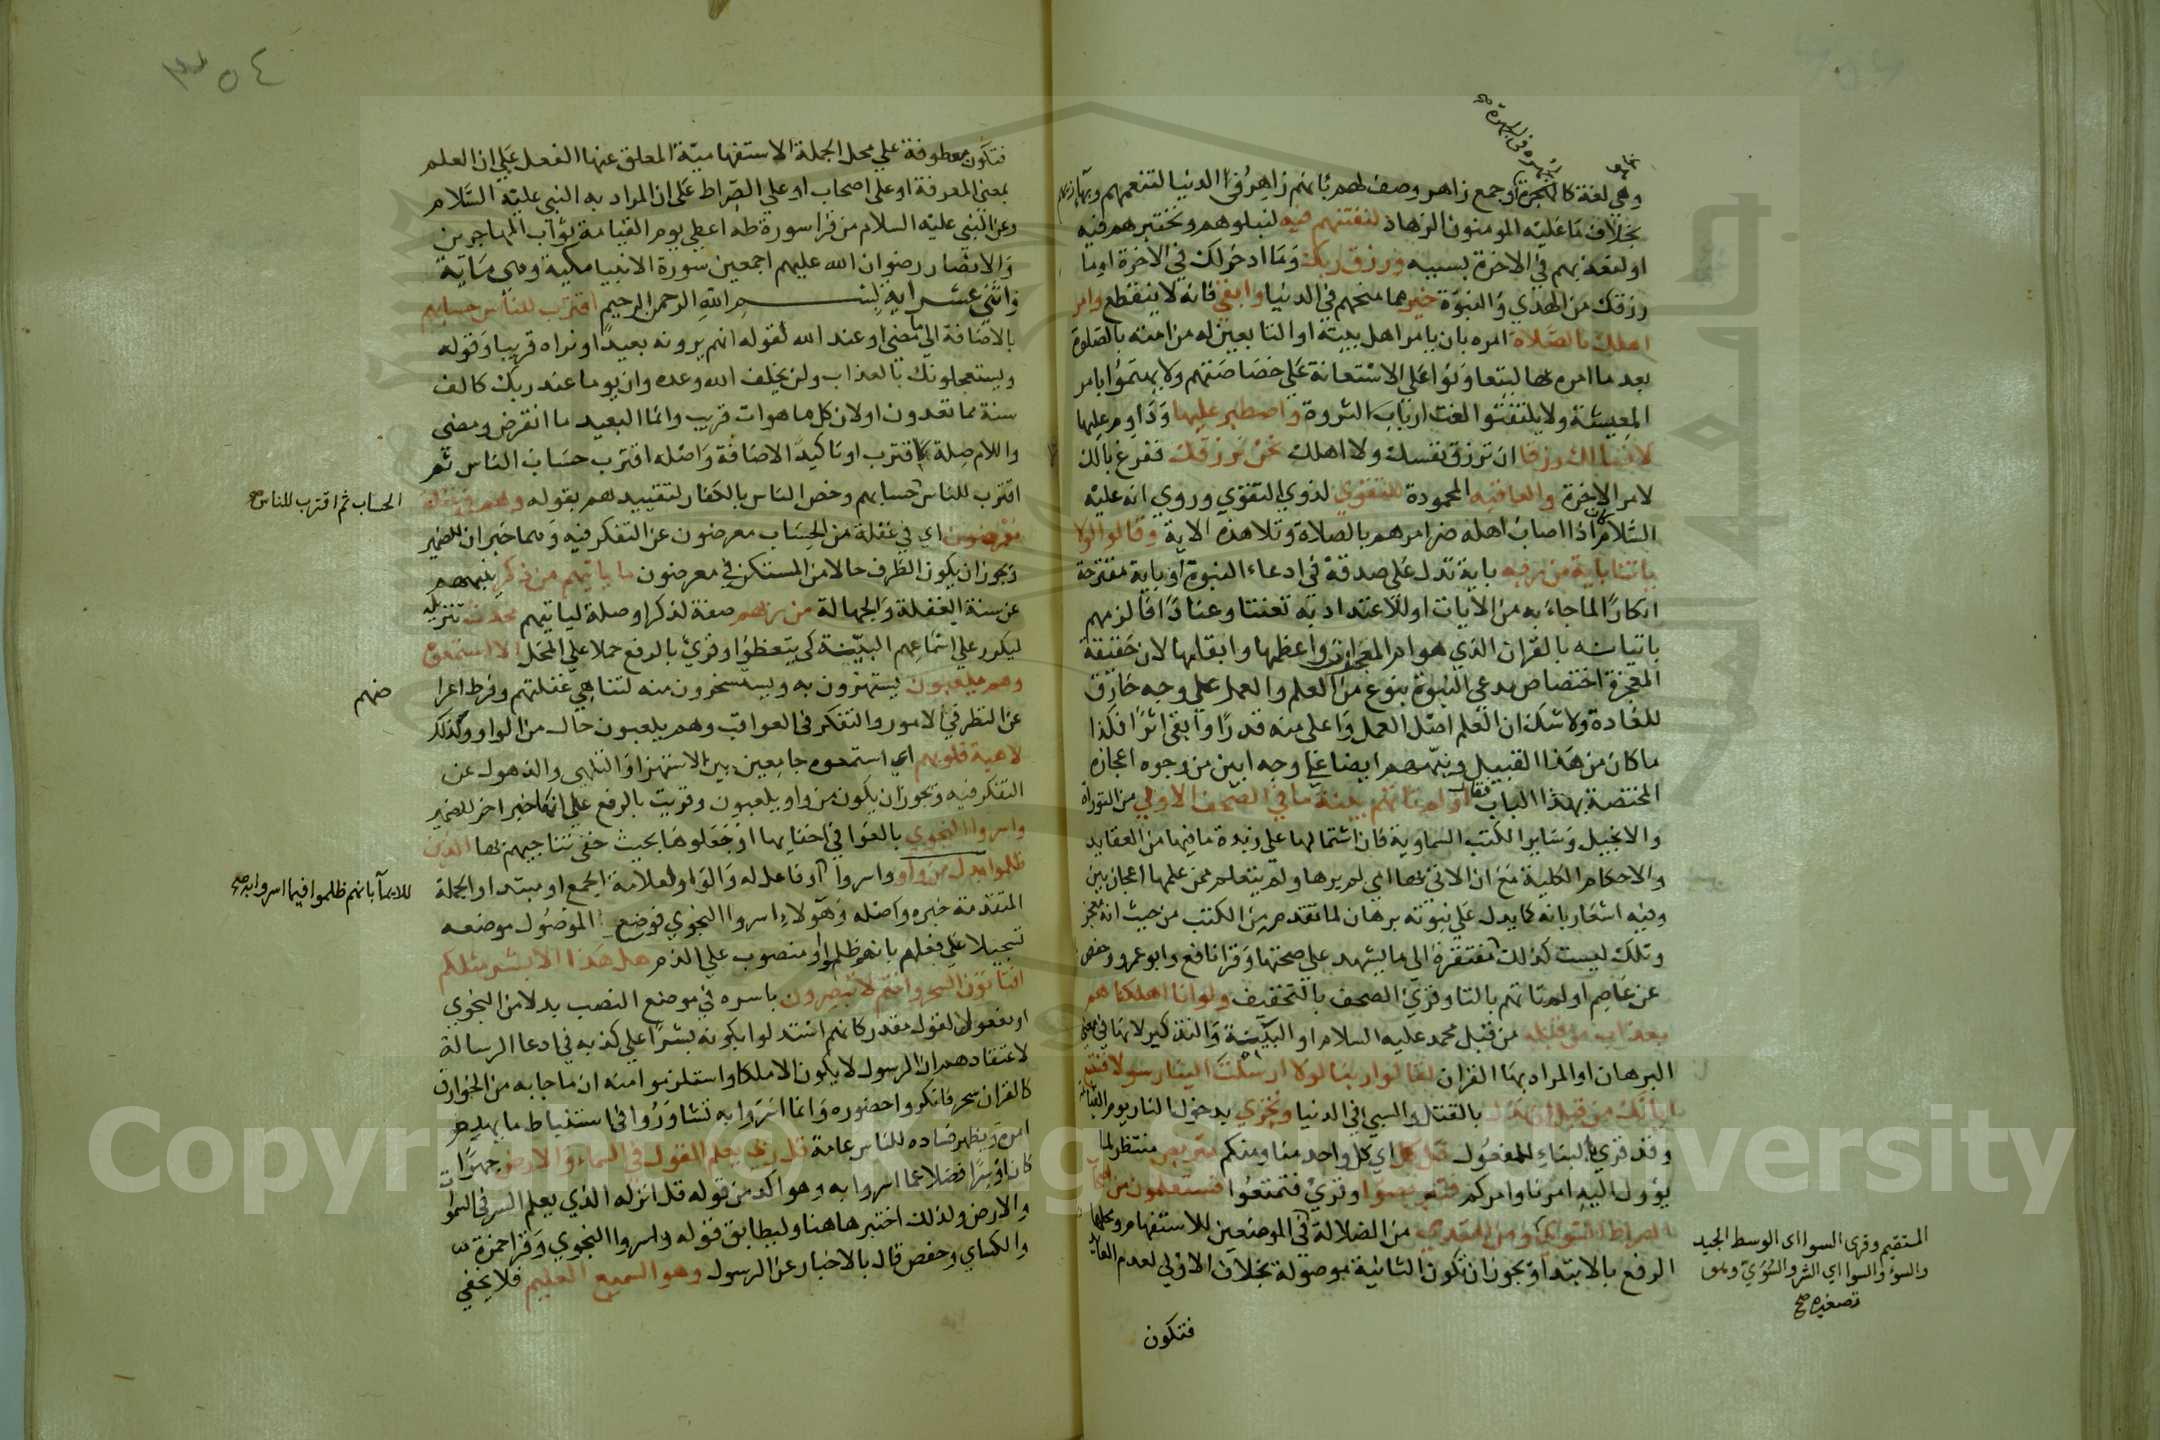 وهي لغة كالجهرة اوجمع زاهر وصف لهم بانهم زاهرُو الدنيا لتنعمهم وبهاء زيهم
بخلاف ما عليه المومنون الزهاد لنفتنهم فيه لنبلوهم ونختبرهم فيه
او لنعذبهم في الاخرة بسببه ورزق ربك وما ادخر لك في الاخرة اوما
رزقك من الهدي والنبوة خير مما منحهم في الدنيا وابقى فانه لا ينقطع وامر
اهلك بالصلاة امره بان يامر اهل بيته او التابعين له من امته بالصلوة
بعد ما امره بها ليتعاونوا على الاستعانة على خصاصتهم ولا يهتموا بامر
المعيشة ولا يلتفتوا لفت ارباب الثروة واصطبر عليها وداوم عليها
لا نسالك رزقا ان ترزق نفسك ولا اهلك نحن نرزقك ففرغ بالك
لامر الاخرة والعاقبه المحمودة للتقوي لذوي التقوي وروي انه عليه
السلام كان اذا اصاب اهله ضر امرهم بالصلاة وتلا هذه الاية وقالوا لولا
ياتينا باية من ربه باية تدل على صدقه في ادعاء النبوة او باية مقترحة
انكارًا لما جاء به من الايات او للاعتداد به تعنتا وعنادًا فالزمهم
باتيانه بالقران الذي هو ام المعجزات واعظمها وابقاها لان حقيقة
المعجزة اختصاص مدعى النبوة بنوع من العلم والعمل على وجه خارق
للعادة ولا شك ان العلم اصل العمل واعلى منه قدرًا وابقى اثرًا فكذا
ما كان من هذا القبيل ونبههم ايضا على وجه ابين من وجوه اعجازه
المختصة بهذا الباب فقال اولم تاتهم بينة ما في الصحف الاولي من التوراة
والانجيل وساير الكتب السماوية فان اشتمالها على زبدة ما فيها من العقايد
والاحكام الكلية مع ان الاتي بها امي لم يرها ولم يتعلم ممن علمها اعجاز بين
وفيه اشعار بانه كما يدل على نبوته برهان لما تقدم من الكتب من حيث انه معجز
وتلك ليست كذلك مفتقرة الى ما يشهد على صحتها وقرا نافع وابو عمرو وحفص
عن عاصم اولم تاتهم بالتا وقرئ الصحف بالتخفيف ولو انا اهلكناهم
بعذاب من قبله من قبل محمد عليه السلام او البينة والتذكير لانها في معنى
البرهان او المراد بها القران لقالوا ربنا لولا ارسلت الينا رسولا فنتبع
اياتك من قبل ان نذل بالقتل والسبي في الدنيا ونخزي بدخول النار يوم القيامة
وقد قري بالبناء للمفعول قل كل اي كل واحد منا ومنكم متربص منتظر لما
يؤول اليه امرنا وامركم فتربصوا وقرئ فتمتعوا فستعلمون من اصحاب
الصراط السوي ومن اهتدي من الضلالة في الموضعين للاستفهام ومحلها
الرفع بالابتدا ويجوز ان تكون الثانية موصولة بخلاف الاولي لعدم العايد
المستقيم وقرى السوا اى الوسط الجيد
والسوْ والسوا اي الشر والسُوَيّ وهو
تصغيره صح
فتكون
٣٥٤
فتكون معطوفة على محل الجملة الاستفهامية المعلق عنها الفعل على ان العلم
بمعنى المعرفة او على اصحاب او على الصراط على ان المراد به النبي عليه السلام
وعن النبي عليه السلام من قرا سورة طه اعطي يوم القيامة ثواب المهاجرين
والانصار رضوان الله عليهم اجمعين سورة الانبيا مكية وهي ماية
واثنى عشر اية بسم الله الرحمن الرحيم اقترب للناس حسابهم
بالاضافة الى ما مضى او عند الله لقوله انهم يرونه بعيدًا ونراه قريبا وقوله
ويستعجلونك بالعذاب ولن يخلف الله وعده وان يوما عند ربك كالف
سنة مما تعدون او لان كل ما هوات قريب وانما البعيد ما انقرض ومضى
واللام صلة لاقترب او تاكيد الاضافة واصله اقترب حساب الناس ثم
اقترب للناس حسابهم وخص الناس بالكفار لتقييدهم بقوله وهم في غفلة
الحساب ثم اقترب للناس صح
معرضون اي في غفلة من الحساب معرضون عن التفكر فيه وهما خبران للضمير
ويجوز ان يكون الظرف حالا من المستكن في معرضون ما ياتيهم من ذكر ينبههم
عن سنة الغفلة والجهالة من ربهم صفة لذكر او صلة لياتيهم محدث تنزيله
ليكرر على اسماعهم البينة كي يتعظوا وقرئ بالرفع حملا على المحل الا استمعوه
وهم يلعبون يستهزون به ويستسخرون منه لتناهي غفلتهم وفرط اعرا
ضهم
عن النظر في الامور والتفكر فى العواقب وهم يلعبون حال من الواو وكذلك
لاهية قلوبهم اي استمعوه جامعين بين الاستهزا والتلهى والذهول عن
التفكر فيه ويجوز ان يكون من واو يلعبون وقريت بالرفع على انها خبر اخر للضمير
واسروا النجوي بالغوا في اخفايها او جعلوها بحيث خفى تناجيهم بها الذين
ظلموا بدل من واو واسروا او فاعل له والواو لعلامة الجمع او مبتدا والجملة
للايمآ بانهم ظلموا فيما اسروا به صح
المتقدمة خبره واصله وهولاء اسروا النجوي فوضع الموصول موضعه
تسجيلا على فعلهم بانه ظلم او منصوب على الذم هل هذا الا بشر مثلكم
افتاتون السحر وانتم تبصرون باسره في موضع النصب بدلا من النجوي
او مفعولا لقول مقدر كانهم استدلوا بكونه بشرًا على كذبه في ادعا الرسالة
لاعتقادهم ان الرسول لا يكون الا ملكا واستلزموا منه ان ما جا به من الخوارق
كالقران سحر فانكروا حضوره وانما اسروا به تشاورًا فى استنباط ما يهدم
امره ويظهر فساده للناس عامة قل ربي يعلم القول في السماء والارض جهرًا
كان او سرًا فضلا عما اسروا به وهو اكد من قوله قل انزله الذي يعلم السر في السموات
والارض ولذلك اختير هاهنا وليطابق قوله واسروا النجوي وقرا حمزة
والكساي وحفص قال بالاخبار عن الرسول وهو السميع العليم فلا يخفي